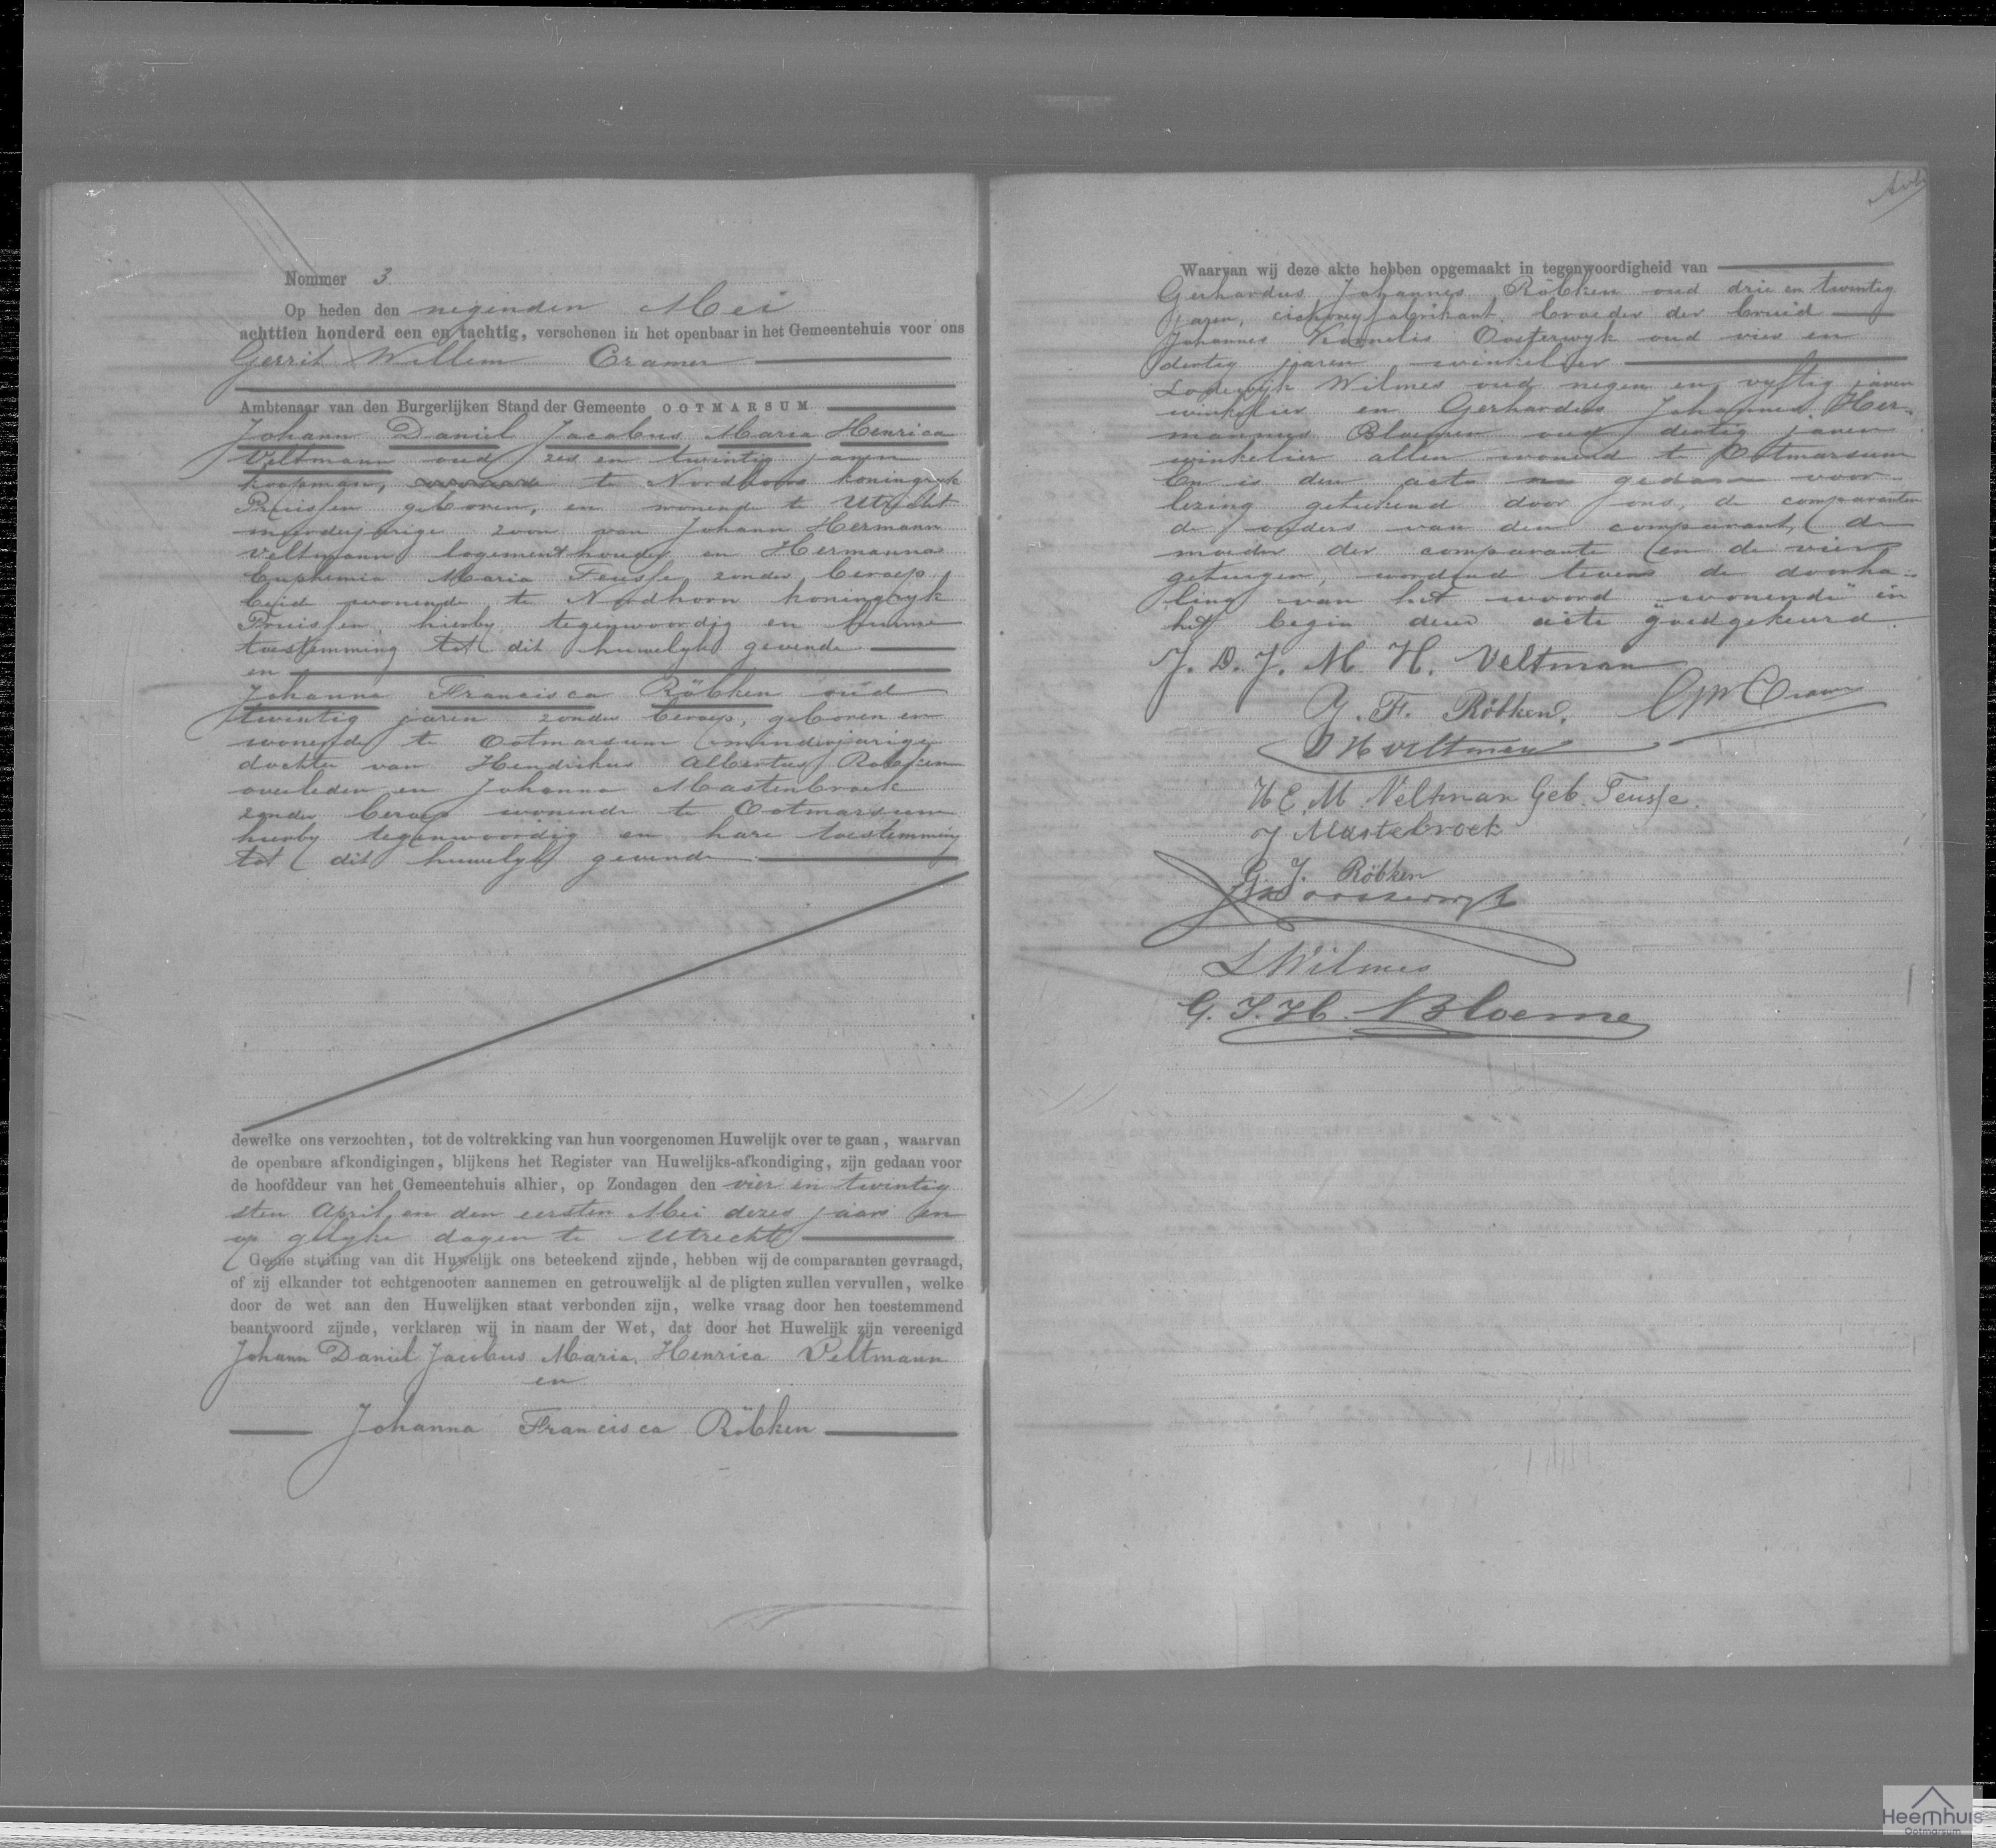 Nommer 3
Op heden den negenden Mei
achttien honderd een en tachtig, verschenen in het openbaar in het Gemeentehuis voor ons
Gerrit Willem Cramer
Ambtenaar van den Burgerlijken Stand der Gemeente OOTMARSUM
Johann Daniel Jacobus Maria Henrica
Veltmann oud zes en twintig jaren
koopman, te Nordhorn koningryk
Pruissen geboren, en wonende te Utrecht
meerderjarige zoon van Johann Hermann
Veltmann logementhouder en Hermanna
Euphemia Maria Teusse zonder beroep,
beide wonende te Nordhorn koningryk
Pruissen, hierby tegenwoordig en hunne
toestemming tot dit huwelyk gevende
en
Johanna Francisca Röbken oud
twintig jaren zonder beroep, geboren en
wonende te Ootmarsum minderjarige
dochter van Hendrikus Albertus Röbken
overleden en Johanna Mastenbroek
zonder beroep wonende te Ootmarsum
hierby tegenwoordig en hare toestemming
tot dit huwelyk gevende
dewelke ons verzochten, tot de voltrekking van hun voorgenomen Huwelijk over te gaan, waarvan
de openbare afkondigingen, blijkens het Register van Huwelijks-afkondiging, zijn gedaan voor
de hoofddeur van het Gemeentehuis alhier, op Zondagen den vier en twintig
sten April en den eersten Mei dezes jaars en
op gelyke dagen te Utrecht
Geene stuiting van dit Huwelijk ons beteekend zijnde, hebben wij de comparanten gevraagd,
of zij elkander tot echtgenooten aannemen en getrouwelijk al de pligten zullen vervullen, welke
door de wet aan den Huwelijken staat verbonden zijn, welke vraag door hen toestemmend
beantwoord zijnde, verklaren wij in naam der Wet, dat door het Huwelijk zijn vereenigd
Johann Daniel Jacobus Maria Henrica Veltmann
en
Johanna Francisca Röbken
Waarvan wij deze akte hebben opgemaakt in tegenwoordigheid van
Gerhardus Johannes Röbken oud drie en twintig
jaren, cichoreyfabrikant, broeder der bruid
Johannes Kornelis Oosterwyk oud vier en
dertig jaren winkelier
Lodewyk Wilmes oud negen en vyftig jaren
winkelier en Gerhardus Johannes Her-
mannus Bloemen oud dertig jaren
winkelier allen wonend te Ootmarsum
En is deze acte na gedane voor-
lezing geteekend door ons, de comparanten
de ouders van den comparant, de
moeder der comparante en de vier
getuigen, wordend tevens de doorha-
ling van het woord "wonende" in
het begin dezer acte goedgekeurd.
J. D. J. M. H. Veltman
J. F. Röbken. GWCramer
J H Veltman
H E. M. Veltman Geb. Teusse.
J Mastebroek
G. J. Röbken
JK Oosterwyk
L Wilmes
G. J. H. Bloeme
Heemhuis
Ootmarsum